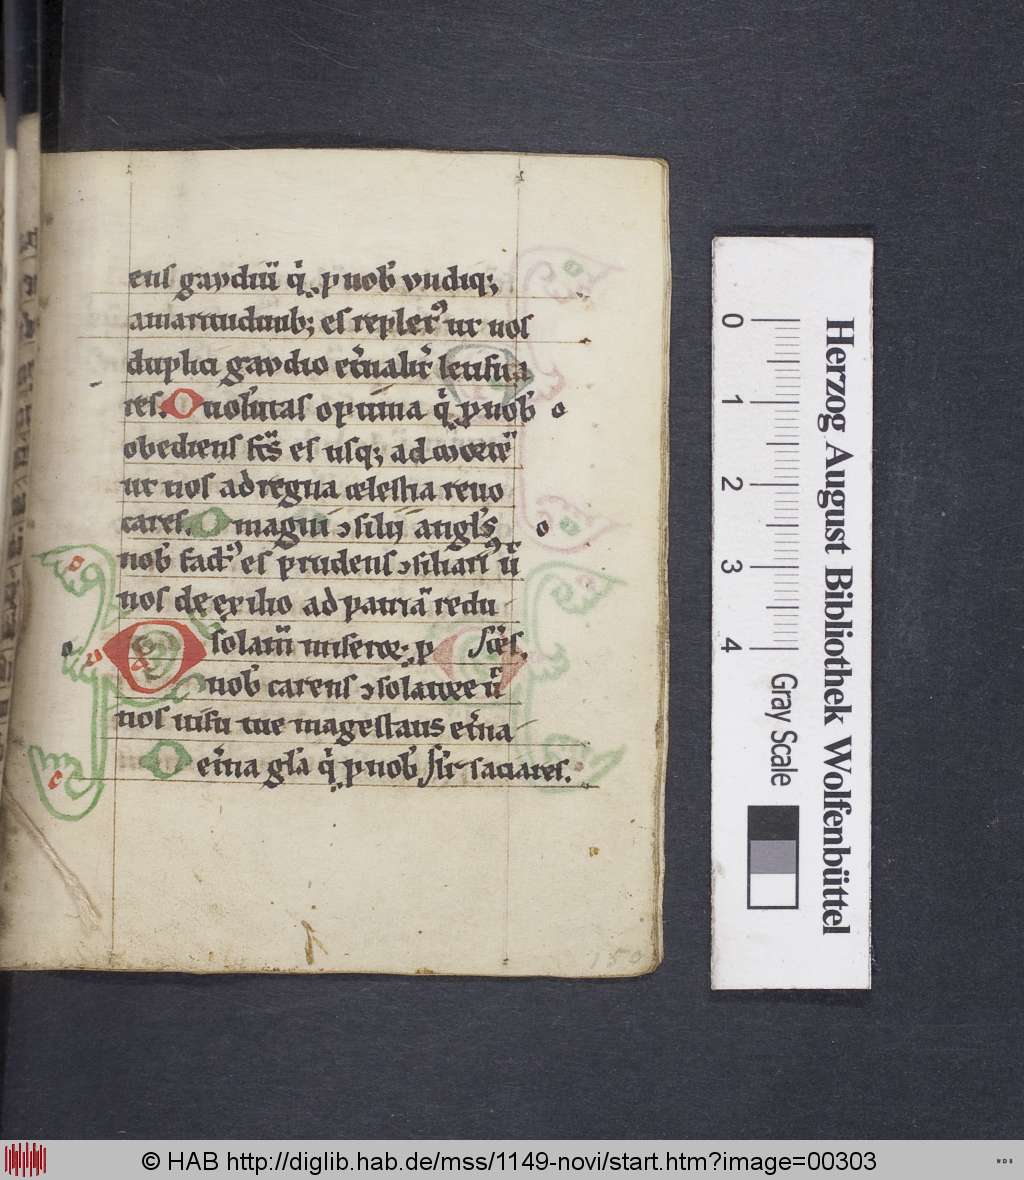 ens gavdiū q̇ p nob᷒ vndiq;
amaritudinib; es replet᷒ ut nos
duplici gavdio et᷒nalit᷒ letifica
res. O uolūtas optima q̇ p nob᷒ o
obediens fc̄s es usq; ad mortē
ut nos ad regna celestia reuo
cares. O magni ↄsilij angl᷒s o
nob᷒ fact᷒ es prudens ↄsiliari᷒ ū
nos de exilio ad patriā redu
o solam̄ miseroꝝ p sc̄es.
nob᷒ carens ↄsolatore ū
nos uisu tue magestatis et᷒na
O et᷒na gl̄a q̇ p nob᷒ sl᷒r saciares.
150
0 1 2 3 4
Herzog August Bibliothek Wolfenbüttel
Gray Scale
© HAB http://diglib.hab.de/mss/1149-novi/start.htm?image=00303